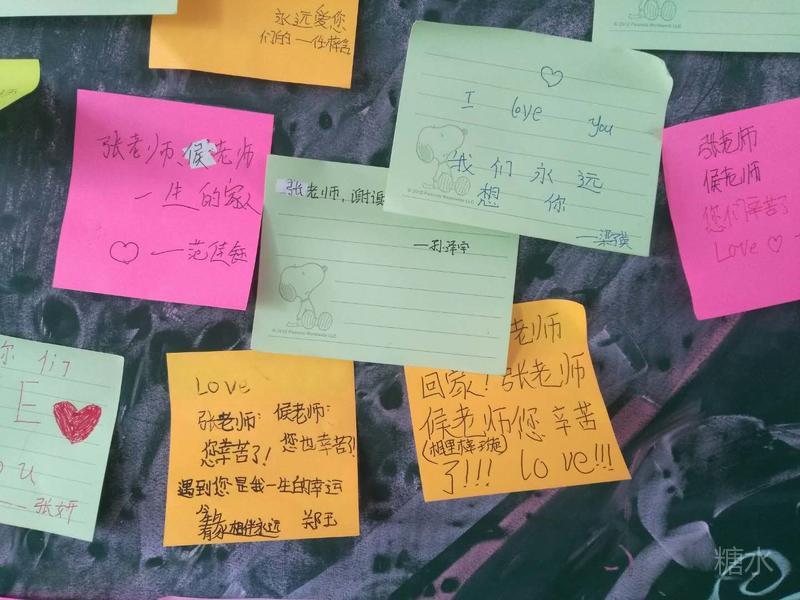 永远爱您
们的一任梓言
张老师、侯老师
一生的家人
♡ 一范佳鑫
张老师,谢谢
一孙泽宇
© 2012 Peanuts Worldwide LLC
♡
I love You
我们永远
想 你
一梁子骥
© 2012 Peanuts Worldwide LLC
© 2012 Peanuts Worldwide LLC
张老师
侯老师
您们辛苦了
Love ♡
你 们
E
U
张妍
Love
张老师: 侯老师:
您辛苦了! 您也辛苦了!
遇到您是我一生的幸运
相伴永远 郑玉
老师
回家!张老师
侯老师您辛苦
了!!! love!!!
糖水